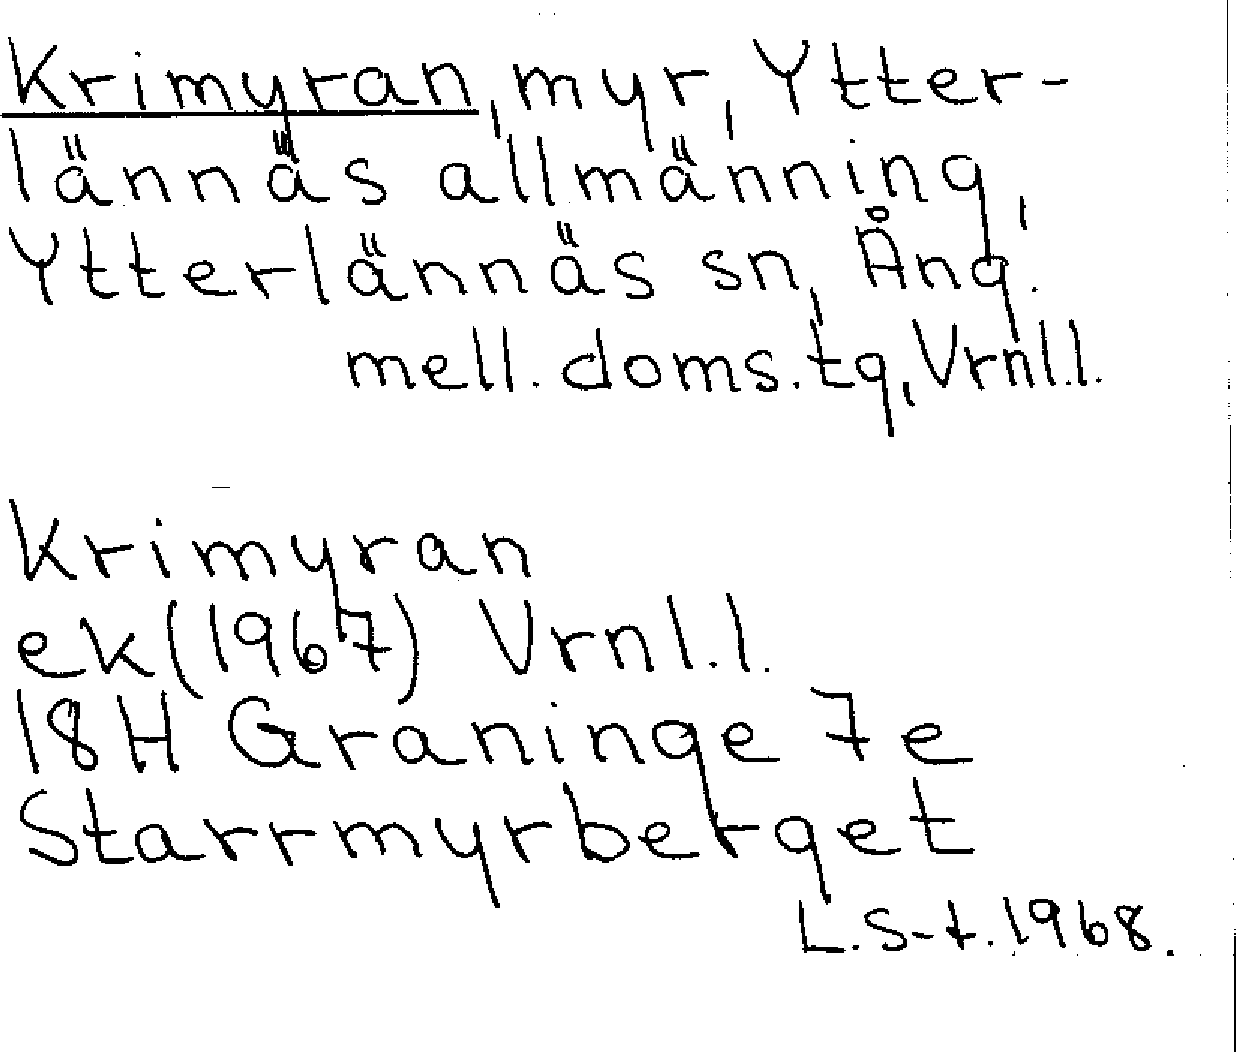 Krimyran, myr, Ytter-
lännäs allmänning,
Ytterlännäs sn, Ång.
mell. doms. tg, Vrnl.l.
Krimyran
ek (1967) Vrnl.l.
18H Graninge 7e
Starrmyrberget
L.S-t. 1968.